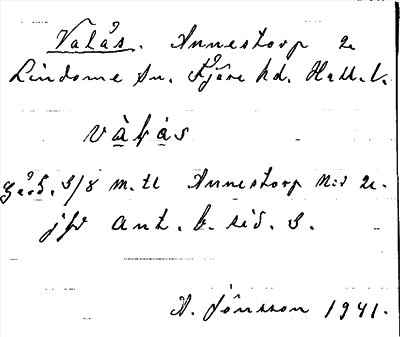 Valås. Annestorp 2
Lindome sn. Fjäre hd. Hall. l.
vàłás
Gård. 3/8 mtl Annestorp N:o 2.
jfr ant. b. sid. 3.
A. Jönsson 1941.